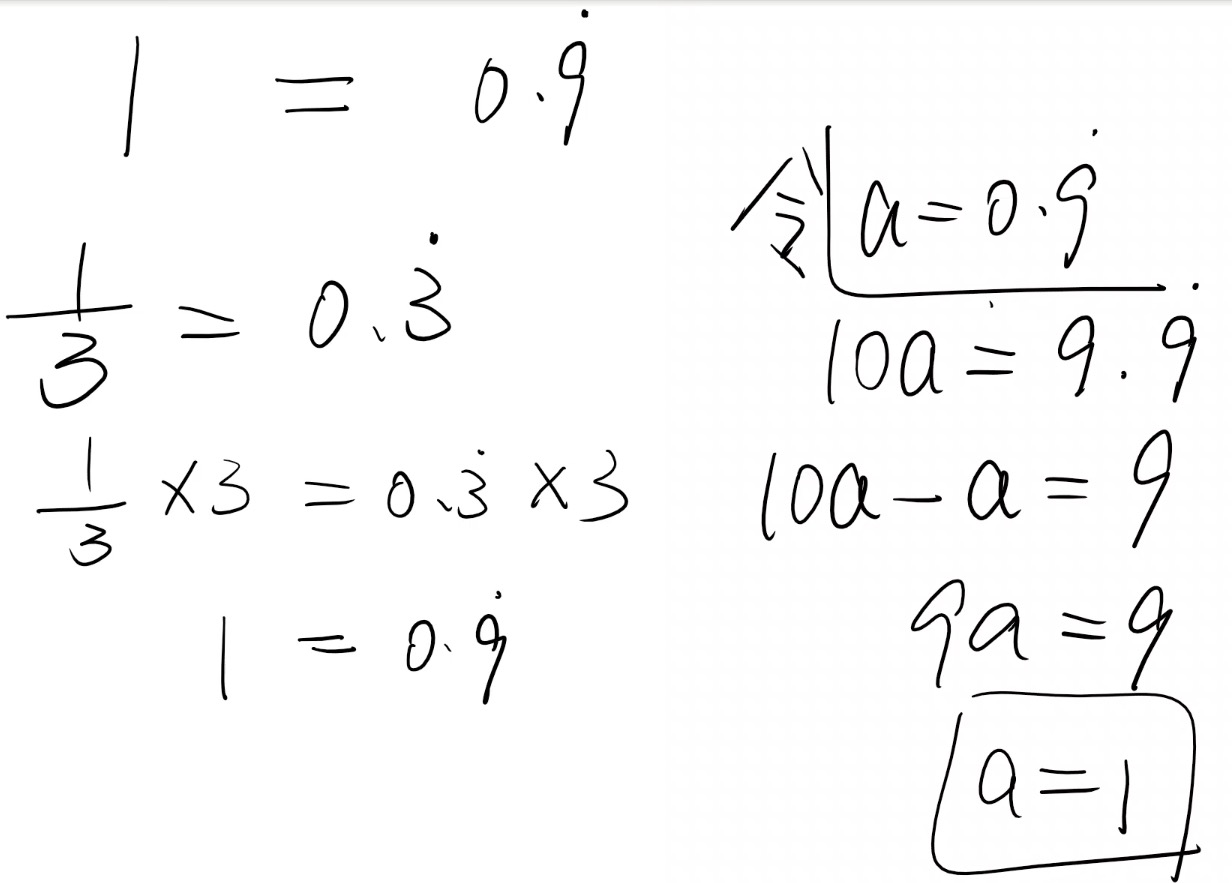 1 = 0.9̇
1/3 = 0.3̇
1/3 ×3 = 0.3̇ ×3
1 = 0.9̇
令 a=0.9̇
10a = 9.9̇
10a - a = 9
9a = 9
a=1